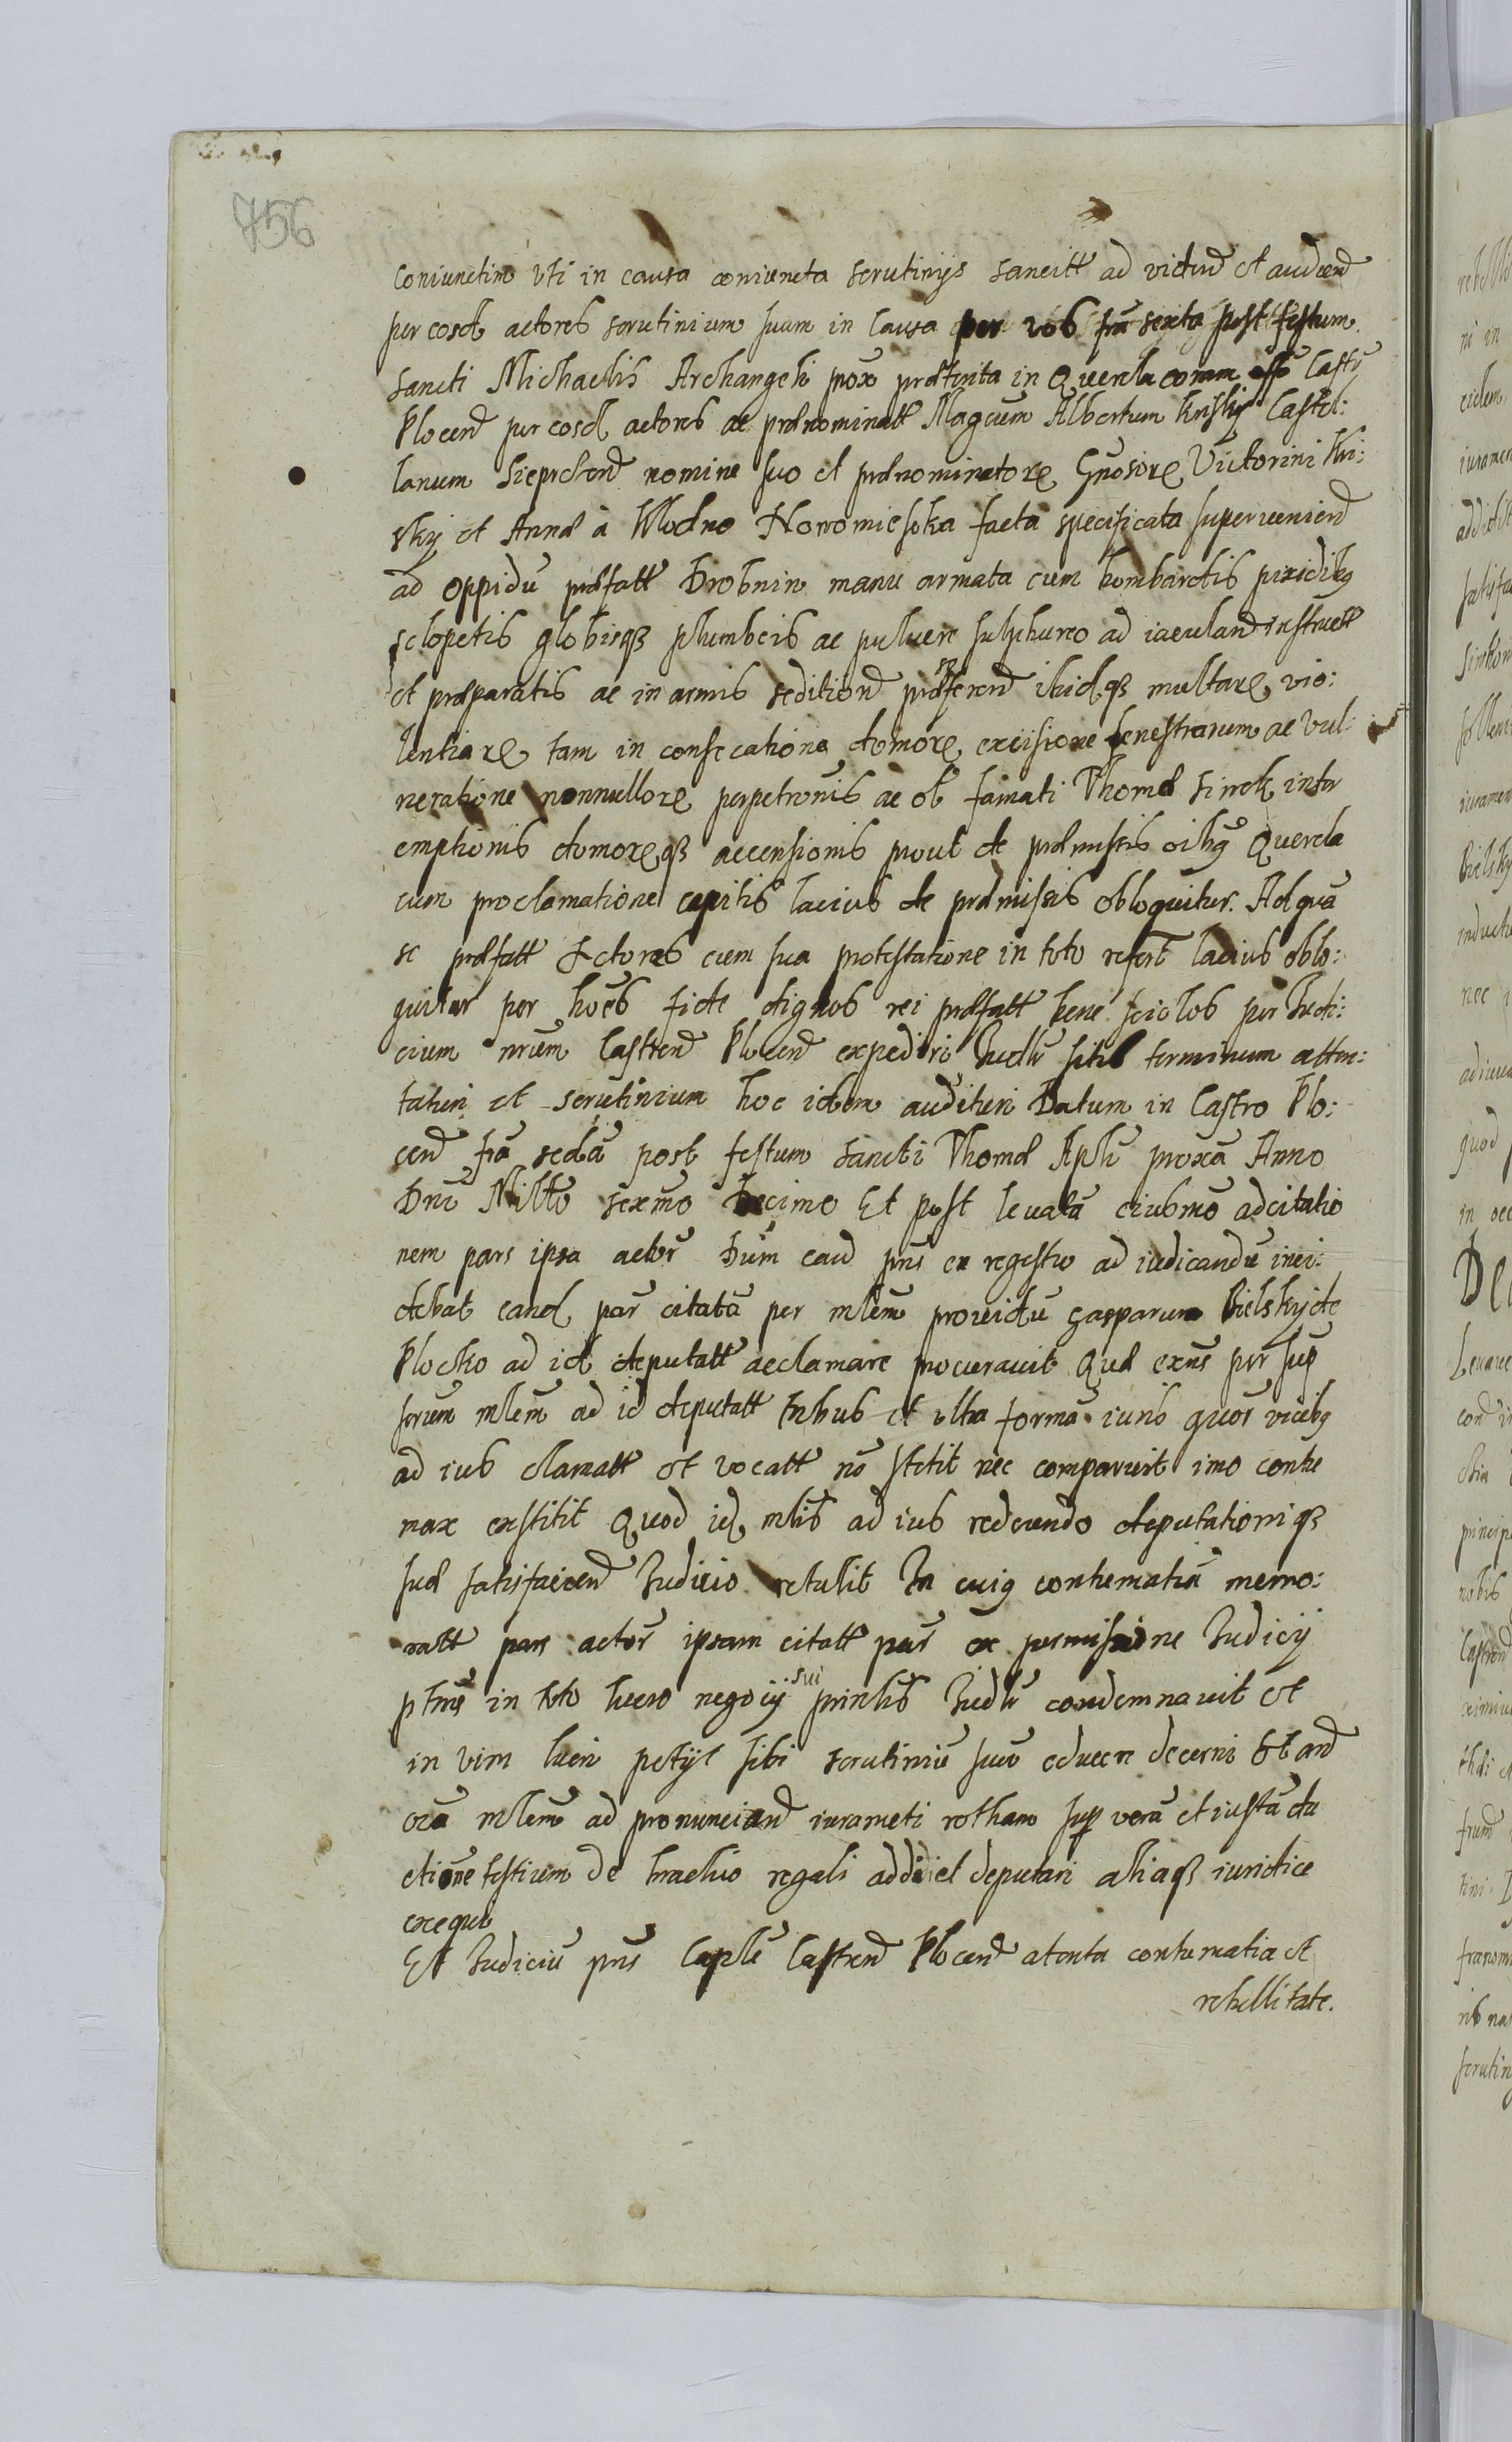 756
coniunctim uti in causa coniuncta scrutinijs sancitt ad videnđ et audienđ
per eosđ actores scrutinium suum in causa per vos fra sexta post festum
Sancti Michaelis Archangeli prox præterita in Querela coram offo Castr
Plocenđ per eosđ actores ac prænominatt Magcum Albertum Kriskij Castel:
lanum Sieprcenđ nomine suo et prænominatorę Gnosorę Victorini Kri:
skij et Annæ à Modno Nowomieska facta specificata supervenienđ
ad oppidū præfatt Drobnin manu armata cum bombardis pixidibꝫ
sclopetis globisqꝫ plumbeis ac pulvere sulphureo ad iaculanđ instructt
et præparatis ac in armis seditionđ præferenđ ibidqꝫ multarę vio:
lentiarę tam in consecatione domorę excisione fenestrarum ac vul:
neratione nonnullorę perpetronis ac ob famati Thomæ Sirck inter
emptionis domoręqꝫ accensionis prout de præmissis oibꝫ Querela
cum proclamatione capitis lacius de præmissis obloquitur. Ad quā
se præfatt Actores cum sua protestatione in toto refert lacius oblo:
quitur per hoēs fide dignos rei præfatt bene sciolos per Iudi:
cium nrum Castrenđ Plocenđ expediri Iudlr sitis terminum atten:
taturi et scrutinium hoc idem audituri Datum in Castro Plo:
cenđ fra secđa post festum Sancti Thomæ Apli proxa Anno
Dni Millo sexmo Decimo Et post levatā eiusmo adcitatio
nem pars ipsa actor Dum cauđ pns ex regestro ad iudicandū inci:
debat eanđ par citatā per mlem prouidū Gasparum Bielskij de
Plocko ad id deputatt acclamare procuravit Quæ exns per sup
scrium mlem ad id deputatt tribus et ultra formā iuris quor vicibꝫ
ad ius clamatt et vocatt nō stetit nec comparuit imo contu
max exstitit Quod iđ mlis ad ius redeundo deputationiqꝫ
suæ satisfacienđ Iudicio retulit In cuiꝫ contumatiā memo:
ratt pars actor ipsam citatt par ex permissione Iudicij
ptnis in toto lucro negocij sui prinlis Iudlr condemnavit et
in vim lucri petijt sibi scrutiniū suū educere decerni Et ad
oia mlem ad pronuncianđ iurameti rotham sup verā et iustā de
ctione testium de brachio regali addi et deputari aliaqꝫ iuridice
exequi
Et Iudiciū pns Caplle Castrenđ Plocenđ atenta contumatia et
rebellitate.